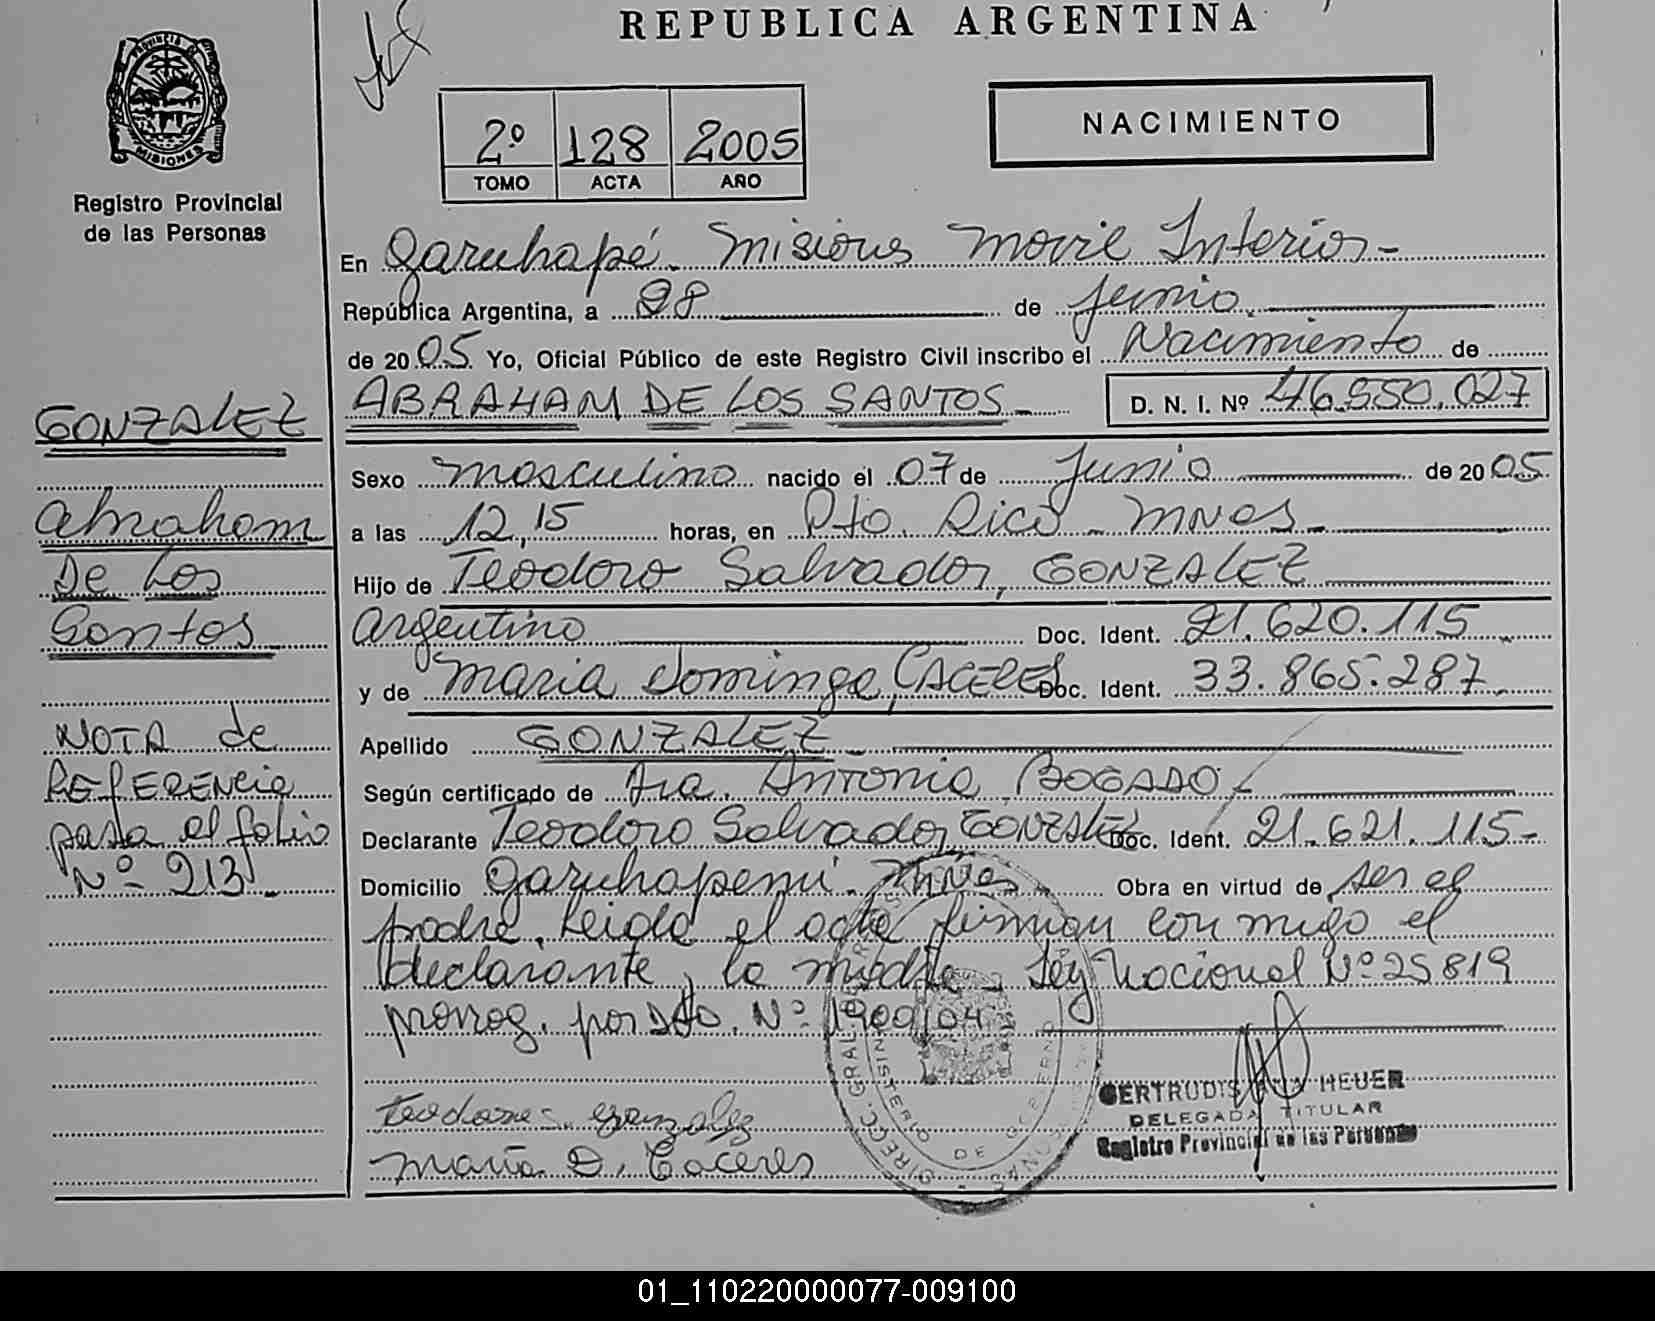 REPUBLICA ARGENTINA
PROVINCIA DE MISIONES
Registro Provincial
de las Personas
2º 128 2005
TOMO ACTA AÑO
NACIMIENTO
En Garuhapé. Misiones Movil Interior-
República Argentina, a 28 de Junio
de 2005. Yo, Oficial Público de este Registro Civil inscribo el Nacimiento de
ABRAHAM DE LOS SANTOS- D. N. I. Nº 46.550.027
Sexo masculino nacido el 07 de Junio de 2005.
a las 12,15 horas, en Pto. Rico - MNES-
Hijo de Teodoro Salvador, GONZALEZ
argentino Doc. Ident. 21.620.115
y de Maria Dominga, CACERES Doc. Ident. 33.865.287
Apellido GONZALEZ-
Según certificado de Antonia BOGADO-
Declarante Teodoro Salvador GONZALEZ Doc. Ident. 21.621.115-
Domicilio Garuhapemí. MNes Obra en virtud de ser el
padre. Leida el acta firman con migo el
declarante, la madre- Ley Nacional Nº 25819
prorrog. por Dto. Nº 1900/04
GONZALEZ
Abraham
De Los
Santos
NOTA de
REFERENCia
pasa el folio
Nº 213
Gonzalez
Maria D. Caceres
DIRECC. GRAL.
MINISTERIO DE GOBIERNO
GERTRUDIS HEUER
DELEGADA TITULAR
Registro Provincial de las Personas
01_110220000077-009100